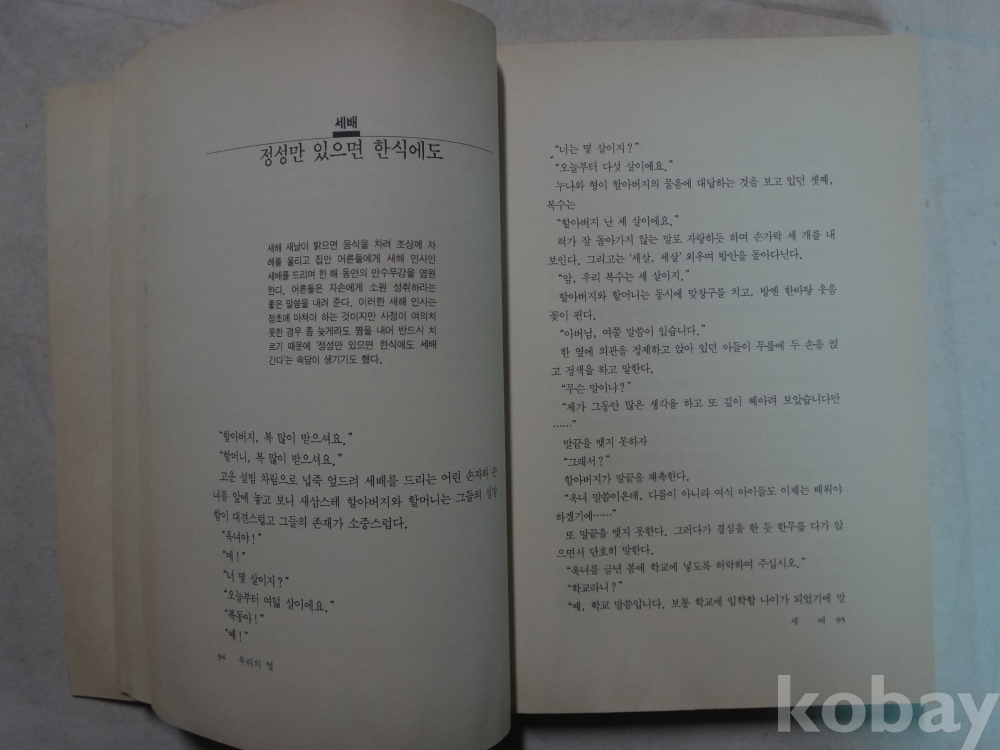 세배
정성만 있으면 한식에도
새해 새날이 밝으면 음식을 차려 조상께 차
례를 올리고 집안 어른들에게 새해 인사인
세배를 드리며 한 해 동안의 만수무강을 염원
한다. 어른들은 자손에게 소원 성취하라는
좋은 말씀을 내려 준다. 이러한 새해 인사는
정초에 마쳐야 하는 것이지만 사정이 여의치
못한 경우 좀 늦게라도 짬을 내어 반드시 치
르기 때문에 '정성만 있으면 한식에도 세배
간다'는 속담이 생기기도 했다.
"할아버지, 복 많이 받으셔요."
"할머니, 복 많이 받으셔요."
고운 설빔 차림으로 넙죽 엎드려 세배를 드리는 어린 손자와 손
녀를 앞에 놓고 보니 새삼스레 할아버지와 할머니는 그들의 성장
함이 대견스럽고 그들의 존재가 소중스럽다.
"옥녀야!"
"예!"
"너 몇 살이지?"
"오늘부터 여덟 살이에요."
"복동아!"
"예!"
94 우리의 얼
"너는 몇 살이지?"
"오늘부터 다섯 살이에요."
누나와 형이 할아버지의 물음에 대답하는 것을 보고 있던 셋째,
복수는
"할아버지 난 세 살이에요."
혀가 잘 돌아가지 않는 말로 자랑하듯 하며 손가락 세 개를 내
보인다. 그리고는 '세살, 세살' 외우며 방안을 돌아다닌다.
"암, 우리 복수는 세 살이지."
할아버지와 할머니는 동시에 맞장구를 치고, 방엔 한바탕 웃음
꽃이 핀다.
"아버님, 여쭐 말씀이 있습니다."
한 옆에 의관을 정제하고 앉아 있던 아들이 무릎에 두 손을 얹
고 정색을 하고 말한다.
"무슨 말이냐?"
"제가 그동안 많은 생각을 하고 또 깊이 헤아려 보았습니다만
……"
말끝을 맺지 못하자
"그래서?"
할아버지가 말끝을 재촉한다.
"옥녀 말씀이온데, 다름이 아니라 여식 아이들도 이제는 배워야
하겠기에……"
또 말끝을 맺지 못한다. 그러다가 결심을 한 듯 한무릎 다가 앉
으면서 단호히 말한다.
"옥녀를 금년 봄에 학교에 넣도록 허락하여 주십시오."
"학교라니?"
"예, 학교 말씀입니다. 보통 학교에 입학할 나이가 되었기에 말
세 배 95
kobay